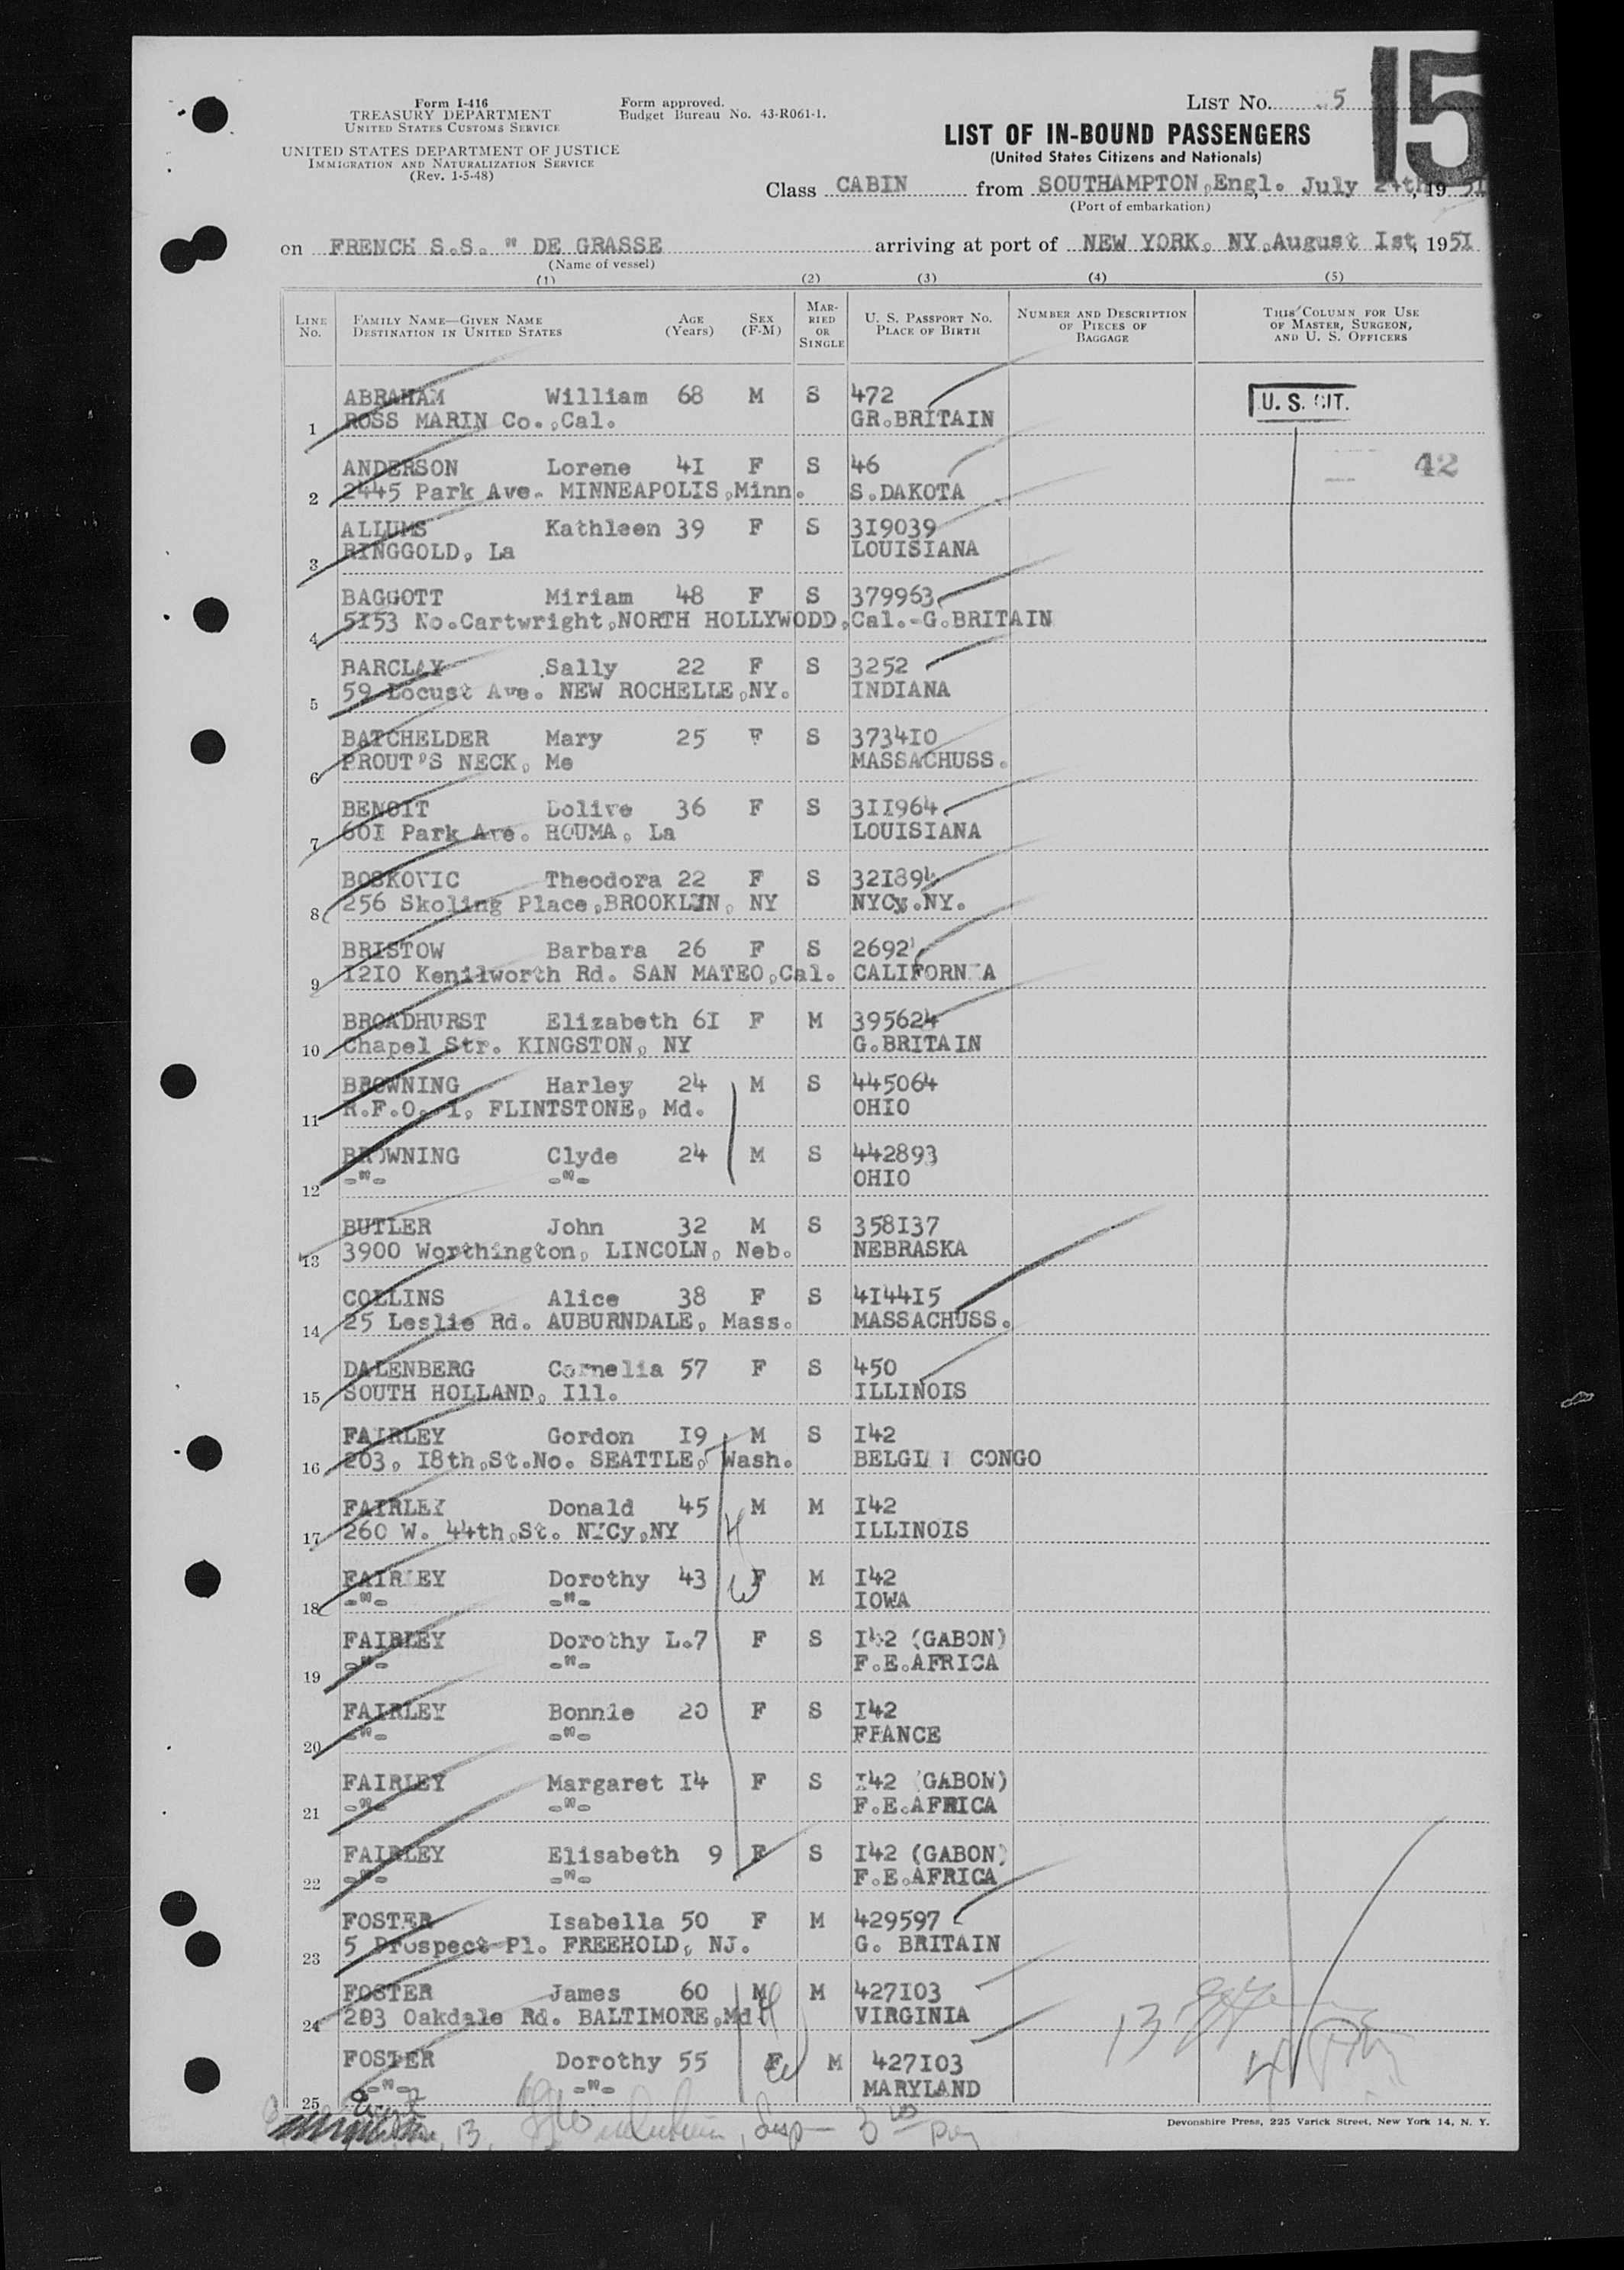 Form I-416
TREASURY DEPARTMENT
UNITED STATES CUSTOMS SERVICE
UNITED STATES DEPARTMENT OF JUSTICE
IMMIGRATION AND NATURALIZATION SERVICE
(Rev. 1-5-48)
Form approved.
Budget Bureau No. 43-R061-1.
LIST No. 5
15
LIST OF IN-BOUND PASSENGERS
(United States Citizens and Nationals)
Class CABIN from SOUTHAMPTON,Engl. July 24th, 1951
(Port of embarkation)
on FRENCH S.S. " DE GRASSE arriving at port of NEW YORK. NY.August Ist, 1951
(Name of vessel)
(1) (2) (3) (4) (5)
LINE No. FAMILY NAME—GIVEN NAME DESTINATION IN UNITED STATES AGE (Years) SEX (F-M) MARRIED OR SINGLE U. S. PASSPORT No. PLACE OF BIRTH NUMBER AND DESCRIPTION OF PIECES OF BAGGAGE THIS COLUMN FOR USE OF MASTER, SURGEON, AND U. S. OFFICERS
ABRAHAM William 68 M S 472 U. S. CIT.
1 ROSS MARIN Co.,Cal. GR.BRITAIN
ANDERSON Lorene 4I F S 46 42
2 2445 Park Ave. MINNEAPOLIS,Minn. S.DAKOTA
ALLUMS Kathleen 39 F S 3I9039
3 RINGGOLD, La LOUISIANA
BAGGOTT Miriam 48 F S 379963
4 5I53 No.Cartwright,NORTH HOLLYWODD,Cal.-G.BRITAIN
BARCLAY Sally 22 F S 3252
5 59 Locust Ave. NEW ROCHELLE,NY. INDIANA
BATCHELDER Mary 25 F S 3734I0
6 PROUT'S NECK, Me MASSACHUSS.
BENOIT Dolive 36 F S 3II964
7 60I Park Ave. HOUMA, La LOUISIANA
BOSKOVIC Theodora 22 F S 32I894
8 256 Skoling Place,BROOKLYN, NY NYCy.NY.
BRISTOW Barbara 26 F S 2692
9 I2I0 Kenilworth Rd. SAN MATEO,Cal. CALIFORNIA
BROADHURST Elizabeth 6I F M 395624
10 Chapel Str. KINGSTON, NY G.BRITAIN
BROWNING Harley 24 M S 445064
11 R.F.O. 1, FLINTSTONE, Md. OHIO
BROWNING Clyde 24 M S 442893
12 -"- -"- OHIO
BUTLER John 32 M S 358I37
13 3900 Worthington, LINCOLN, Neb. NEBRASKA
COLLINS Alice 38 F S 4I44I5
14 25 Leslie Rd. AUBURNDALE, Mass. MASSACHUSS.
DALENBERG Cornelia 57 F S 450
15 SOUTH HOLLAND, Ill. ILLINOIS
FAIRLEY Gordon I9 M S I42
16 203, I8th,St.No. SEATTLE, Wash. BELGIAN CONGO
FAIRLEY Donald 45 M M I42
17 260 W. 44th,St. NYCy,NY ILLINOIS
H
FAIRLEY Dorothy 43 F M I42
18 -"- -"- IOWA
W
FAIRLEY Dorothy L.7 F S I42 (GABON)
19 -"- -"- F.E.AFRICA
FAIRLEY Bonnie 20 F S I42
20 -"- -"- FRANCE
FAIRLEY Margaret I4 F S I42 (GABON)
21 -"- -"- F.E.AFRICA
FAIRLEY Elisabeth 9 F S I42 (GABON)
22 -"- -"- F.E.AFRICA
FOSTER Isabella 50 F M 429597
23 5 Prospect Pl. FREEHOLD, NJ. G. BRITAIN
FOSTER James 60 M M 427I03
24 203 Oakdale Rd. BALTIMORE,Md VIRGINIA
H
FOSTER Dorothy 55 F M 427I03
25 -"- -"- MARYLAND
W
13
13, Insp
Devonshire Press, 225 Varick Street, New York 14, N. Y.